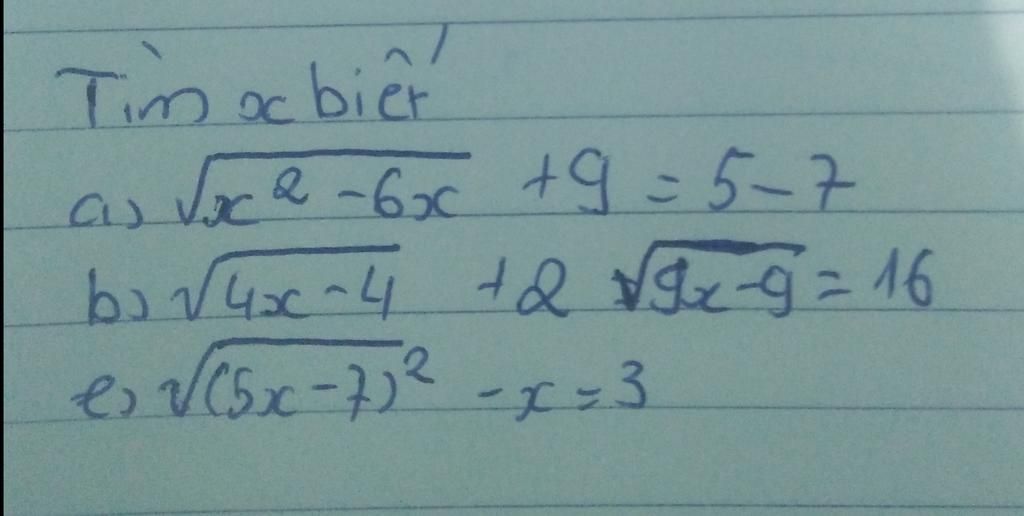 Tìm x biết
a) √(x² - 6x) + 9 = 5 - 7
b) √(4x - 4) + 2 √(9x - 9) = 16
c) √(5x - 7)² - x = 3